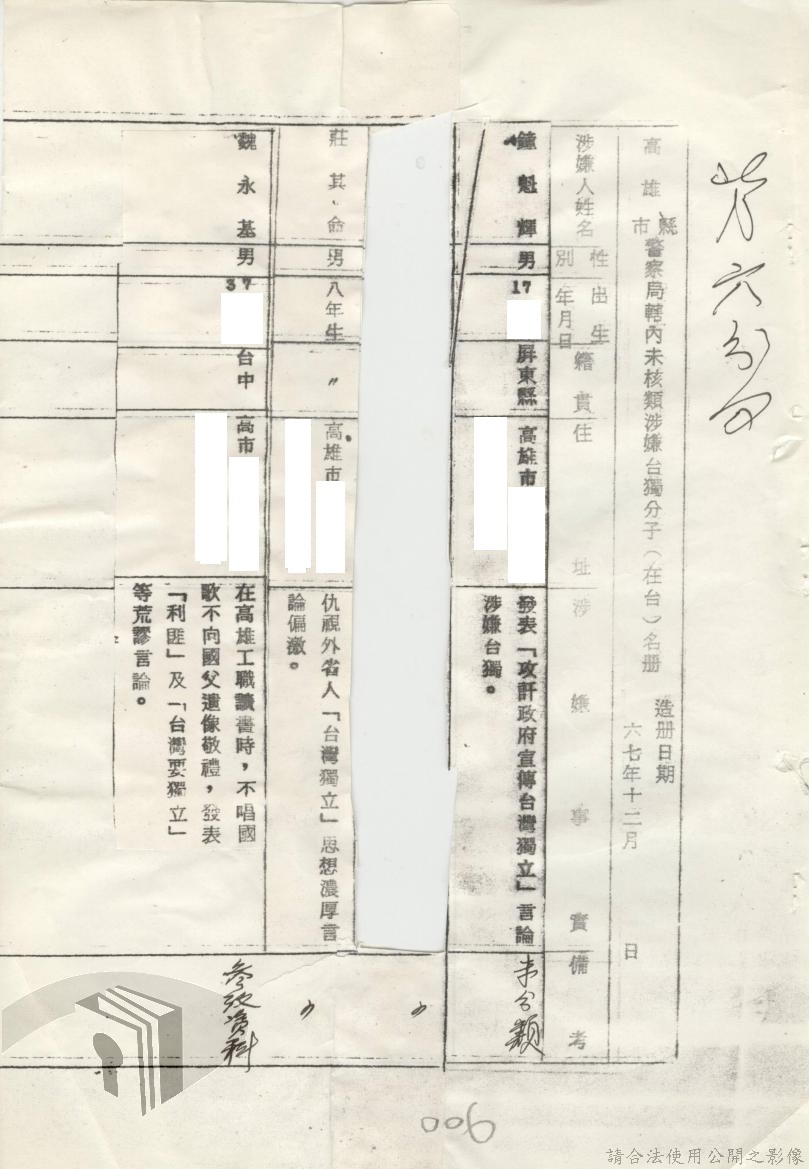 六分
高雄縣市警察局轄內未核類涉嫌台獨分子（在台）名册
造册日期
六七年十二月　日
涉嫌人姓名
性別
出生年月日
籍貫
住址
涉嫌事實
備考
鐘魁輝
男
17
屏東縣
高雄市
發表「攻訐政府宣傳台灣獨立」言論
涉嫌台獨。
未分類
〃
莊其命
男
八年生
〃
高雄市
仇視外省人「台灣獨立」思想濃厚言
論偏激。
〃
魏永基
男
37
台中
高市
在高雄工職讀書時，不唱國
歌不向國父遺像敬禮，發表
「利匪」及「台灣要獨立」
等荒謬言論。
參攷資料
900
請合法使用公開之影像